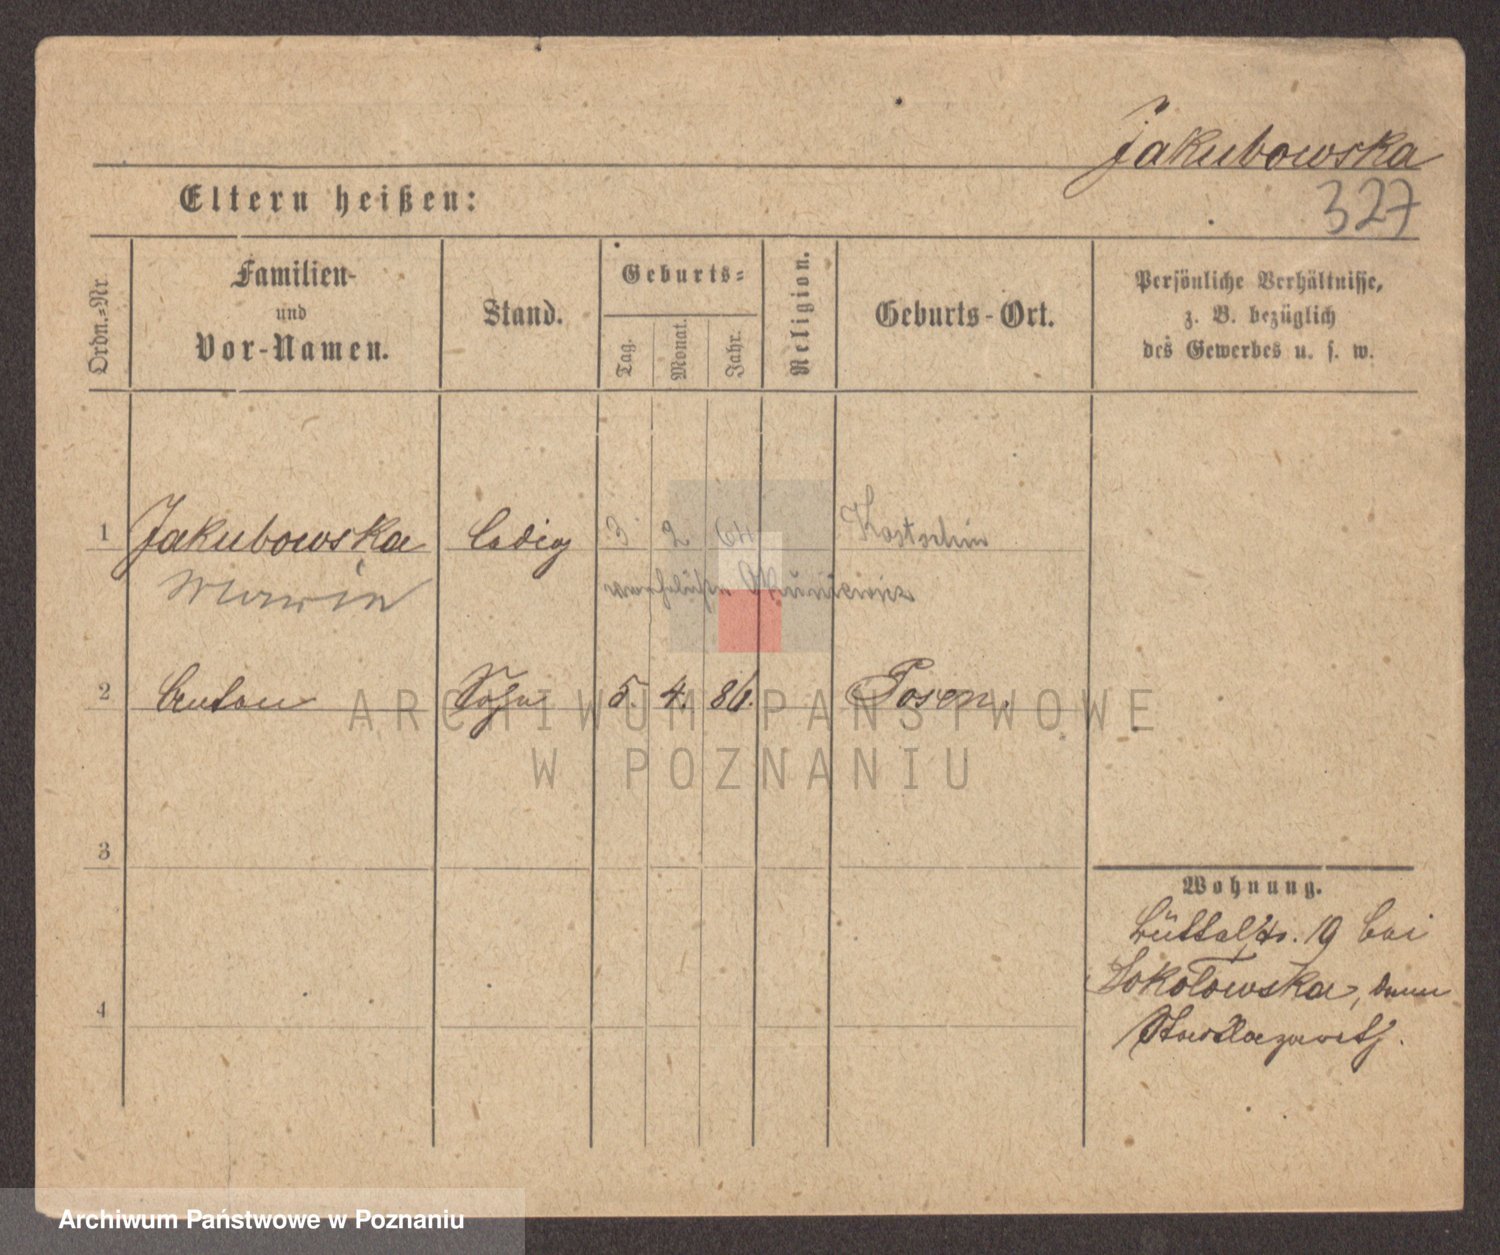 Jakubowska
327
Eltern heißen:
Ordn.-Nr.
Familien-
und
Vor-Namen.
Stand.
Geburts-
Tag.
Monat.
Jahr.
Religion.
Geburts-Ort.
Persönliche Verhältnisse,
z. B. bezüglich
des Gewerbes u. s. w.
1 Jakubowska ledig 3 2 64 Kostschin
Marie
2 Anton Sohn 5. 4. 86. Posen.
ARCHIWUM PAŃSTWOWE
W POZNANIU
3
Wohnung.
Büttelstr. 19 bei
Sokołowska, dann
4
Stadtlazareth.
Archiwum Państwowe w Poznaniu